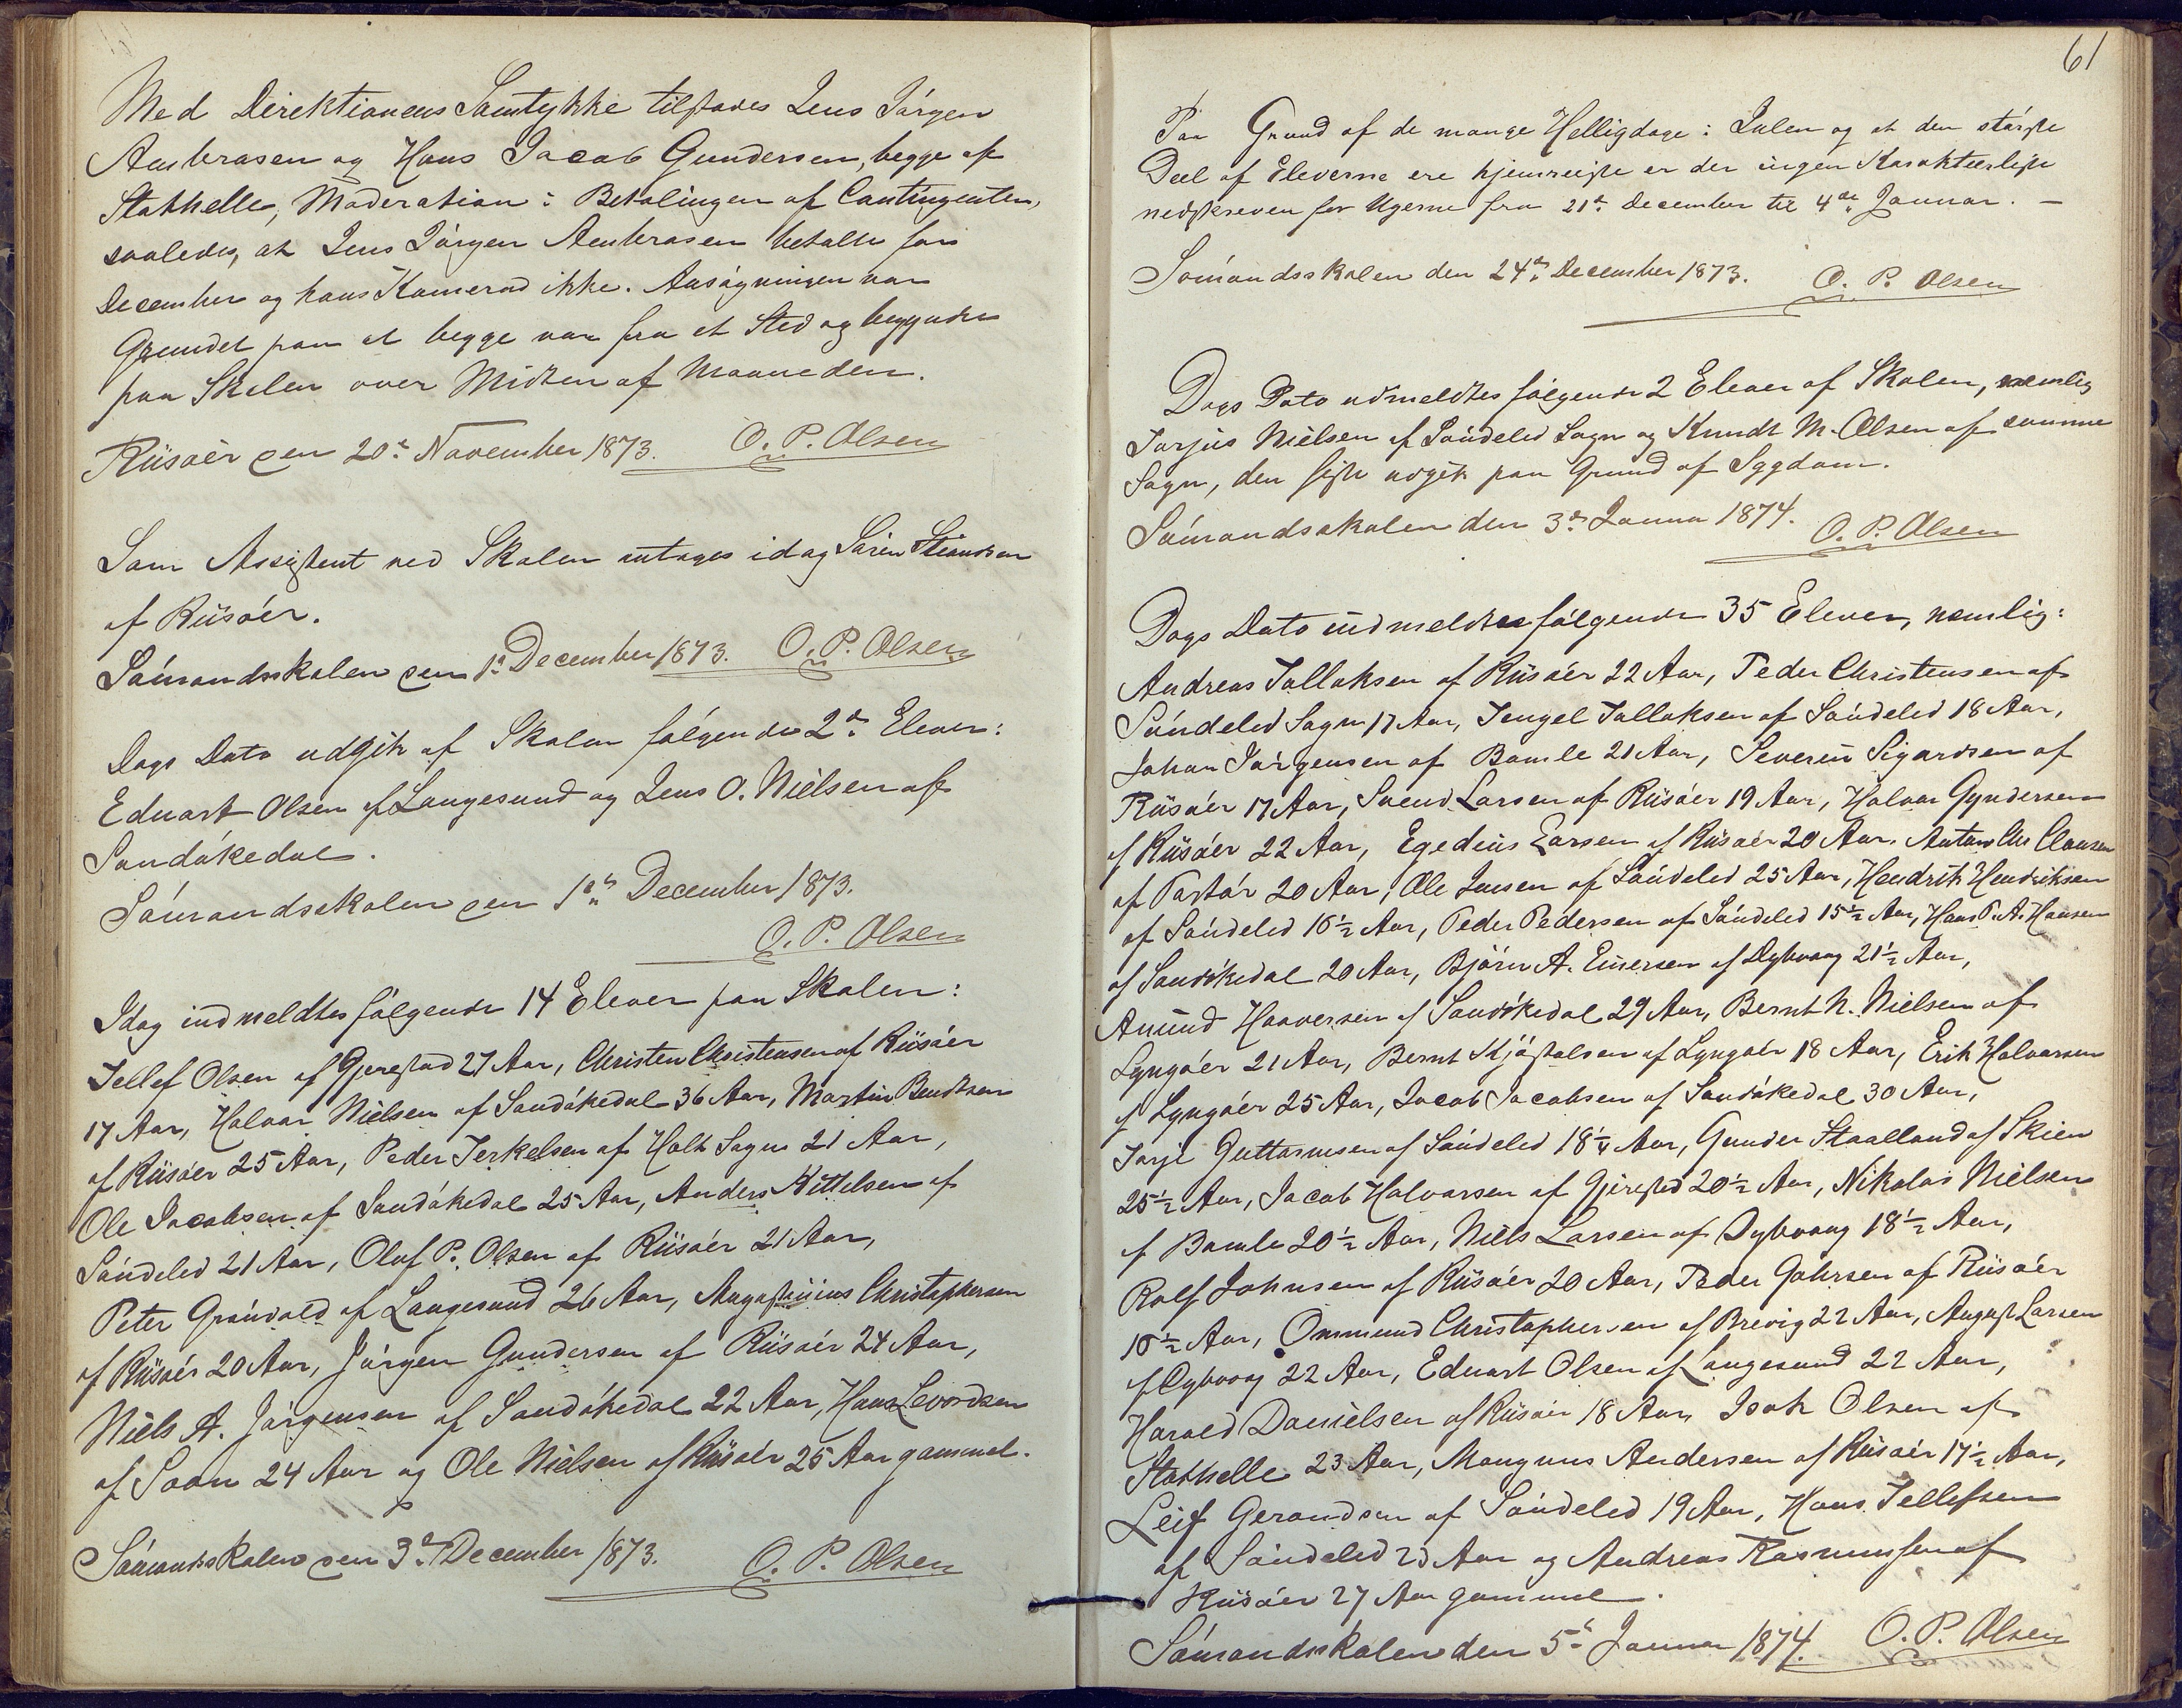 Med Direktionens Samtykke tilstodes Jens Jörgen
Ambrosen og Hans Jacob Gundersen, begge af
Stathelle, Moderation i Betalingen af Contingenten,
saaledes, at Jens Jörgen Ambrosen betalte for
December og hans Kamerad ikke. Ansögningen var
Grundet paa at begge var fra et Sted og begyndte
paa Skolen over Midten af Maaneden.
Riisöer den 20de November 1873. O. P. Olsen
Som Assistent ved Skolen antoges idag Sören
af Riisöer.
Sömandsskolen den 1ste December 1873. O. P. Olsen
Dags Dato udgik af Skolen följende 2de Elever:
Eduart Olsen af Langesund og Jens O. Nielsen af
Sandökedal.
Sömandsskolen den 1ste December 1873.
O. P. Olsen
Idag indmeldtes fölgende 14 Elever paa Skolen:
Tellef Olsen af Gjerestad 27 Aar, Christen Christensen af Riisöer
17 Aar, Halvor Nielsen af Sandökedal 36 Aar, Martin Bendtsen
af Riisöer 25 Aar, Peder Terkelsen af Holt Sogn 21 Aar,
Ole Jacobsen af Sandökedal 25 Aar, Anders Kittelsen af
Söndeled 21 Aar, Oluf P. Olsen af Riisöer 21 Aar,
Peter Grönvold af Langesund 26 Aar, Augustinius Christophersen
af Riisöer 20 Aar, Jörgen Gundersen af Riisöer 24 Aar,
Niels A. Jörgensen af Sandökedal 22 Aar, Hans Levordsen
af Soon 24 Aar og Ole Nielsen af Riisöer 25 Aar gammel.
Sömandsskolen den 3de December 1873. O. P. Olsen
61
Paa Grund af de mange Helligdage i Julen og at den störste
Deel af Eleverne ere hjemreiste er der ingen Karakteerliste
nedskreven for Ugerne fra 21de December til 4de Januar. –
Sömandsskolen den 24de December 1873. O. P. Olsen
Dags Dato udmeldtes fölgende 2 Elever af Skolen, nemlig
Torjus Nielsen af Söndeled Sogn og Knudt M. Olsen af samme
Sogn, den sidste udgik paa Grund af Sygdom.
Sömandsskolen den 3de Januar 1874. O. P. Olsen
Dags Dato indmeldtes fölgende 35 Elever, nemlig:
Andreas Tallaksen af Riisöer 22 Aar, Peder Christensen af
Söndeled Sogn 17 Aar, Tengel Tallaksen af Söndeled 18 Aar,
Johan Jörgensen af Bamle 21 Aar, Severin Sigardsen af
Riisöer 17 Aar, Svend Larsen af Riisöer 19 Aar, Halvor Gyndersen
af Riisöer 22 Aar, Egedius Larsen af Riisöer 20 Aar. Anton Chr Clausen
af 20 Aar, Ole Jensen af Söndeled 25 Aar, Hendrik Hendriksen
af Söndeled 16½ Aar, Peder Pedersen af Söndeled 15½ Aar, Hans P. A. Hansen
af Sandökedal 20 Aar, Björn A. Einersen af Dybvaag 21½ Aar,
Amund Haaversen af Sandökedal 29 Aar, Bernt N. Nielsen af
Lyngöer 21 Aar, Bernt Kjöstolsen af Lyngöer 18 Aar, Erik Halvorsen
af Lyngöer 25 Aar, Jacob Jacobsen af Sandökedal 30 Aar,
Torje Guttormsen af Söndeled 18¼ Aar, Gunder Staalland af Skien
25½ Aar, Jacob Halvorsen af Gjerested 20½ Aar, Nikolai Nielsen
af Bamle 20½ Aar, Niels Larsen af Dybvaag 18½ Aar,
Rolf Johnsen af Riisöer 20 Aar, Peder Gahrsen af Riisöer
½ Aar, Ommund Christophersen af Brevig 22 Aar, August Larsen
af Dybvaag 22 Aar, Eduart Olsen af Langesund 22 Aar,
Harald Danielsen af Riisöer 18 Aar, Isak Olsen af
Stathelle 23 Aar, Mangnus Andersen af Riisöer 17½ Aar,
Leif Gerandsen af Söndeled 19 Aar, Hans Tellefsen
af Söndeled 23 Aar og Andreas Rasmussen af
Riisöer 27 Aar gammel.
Sömandsskolen den 5te Januar 1874. O. P. Olsen